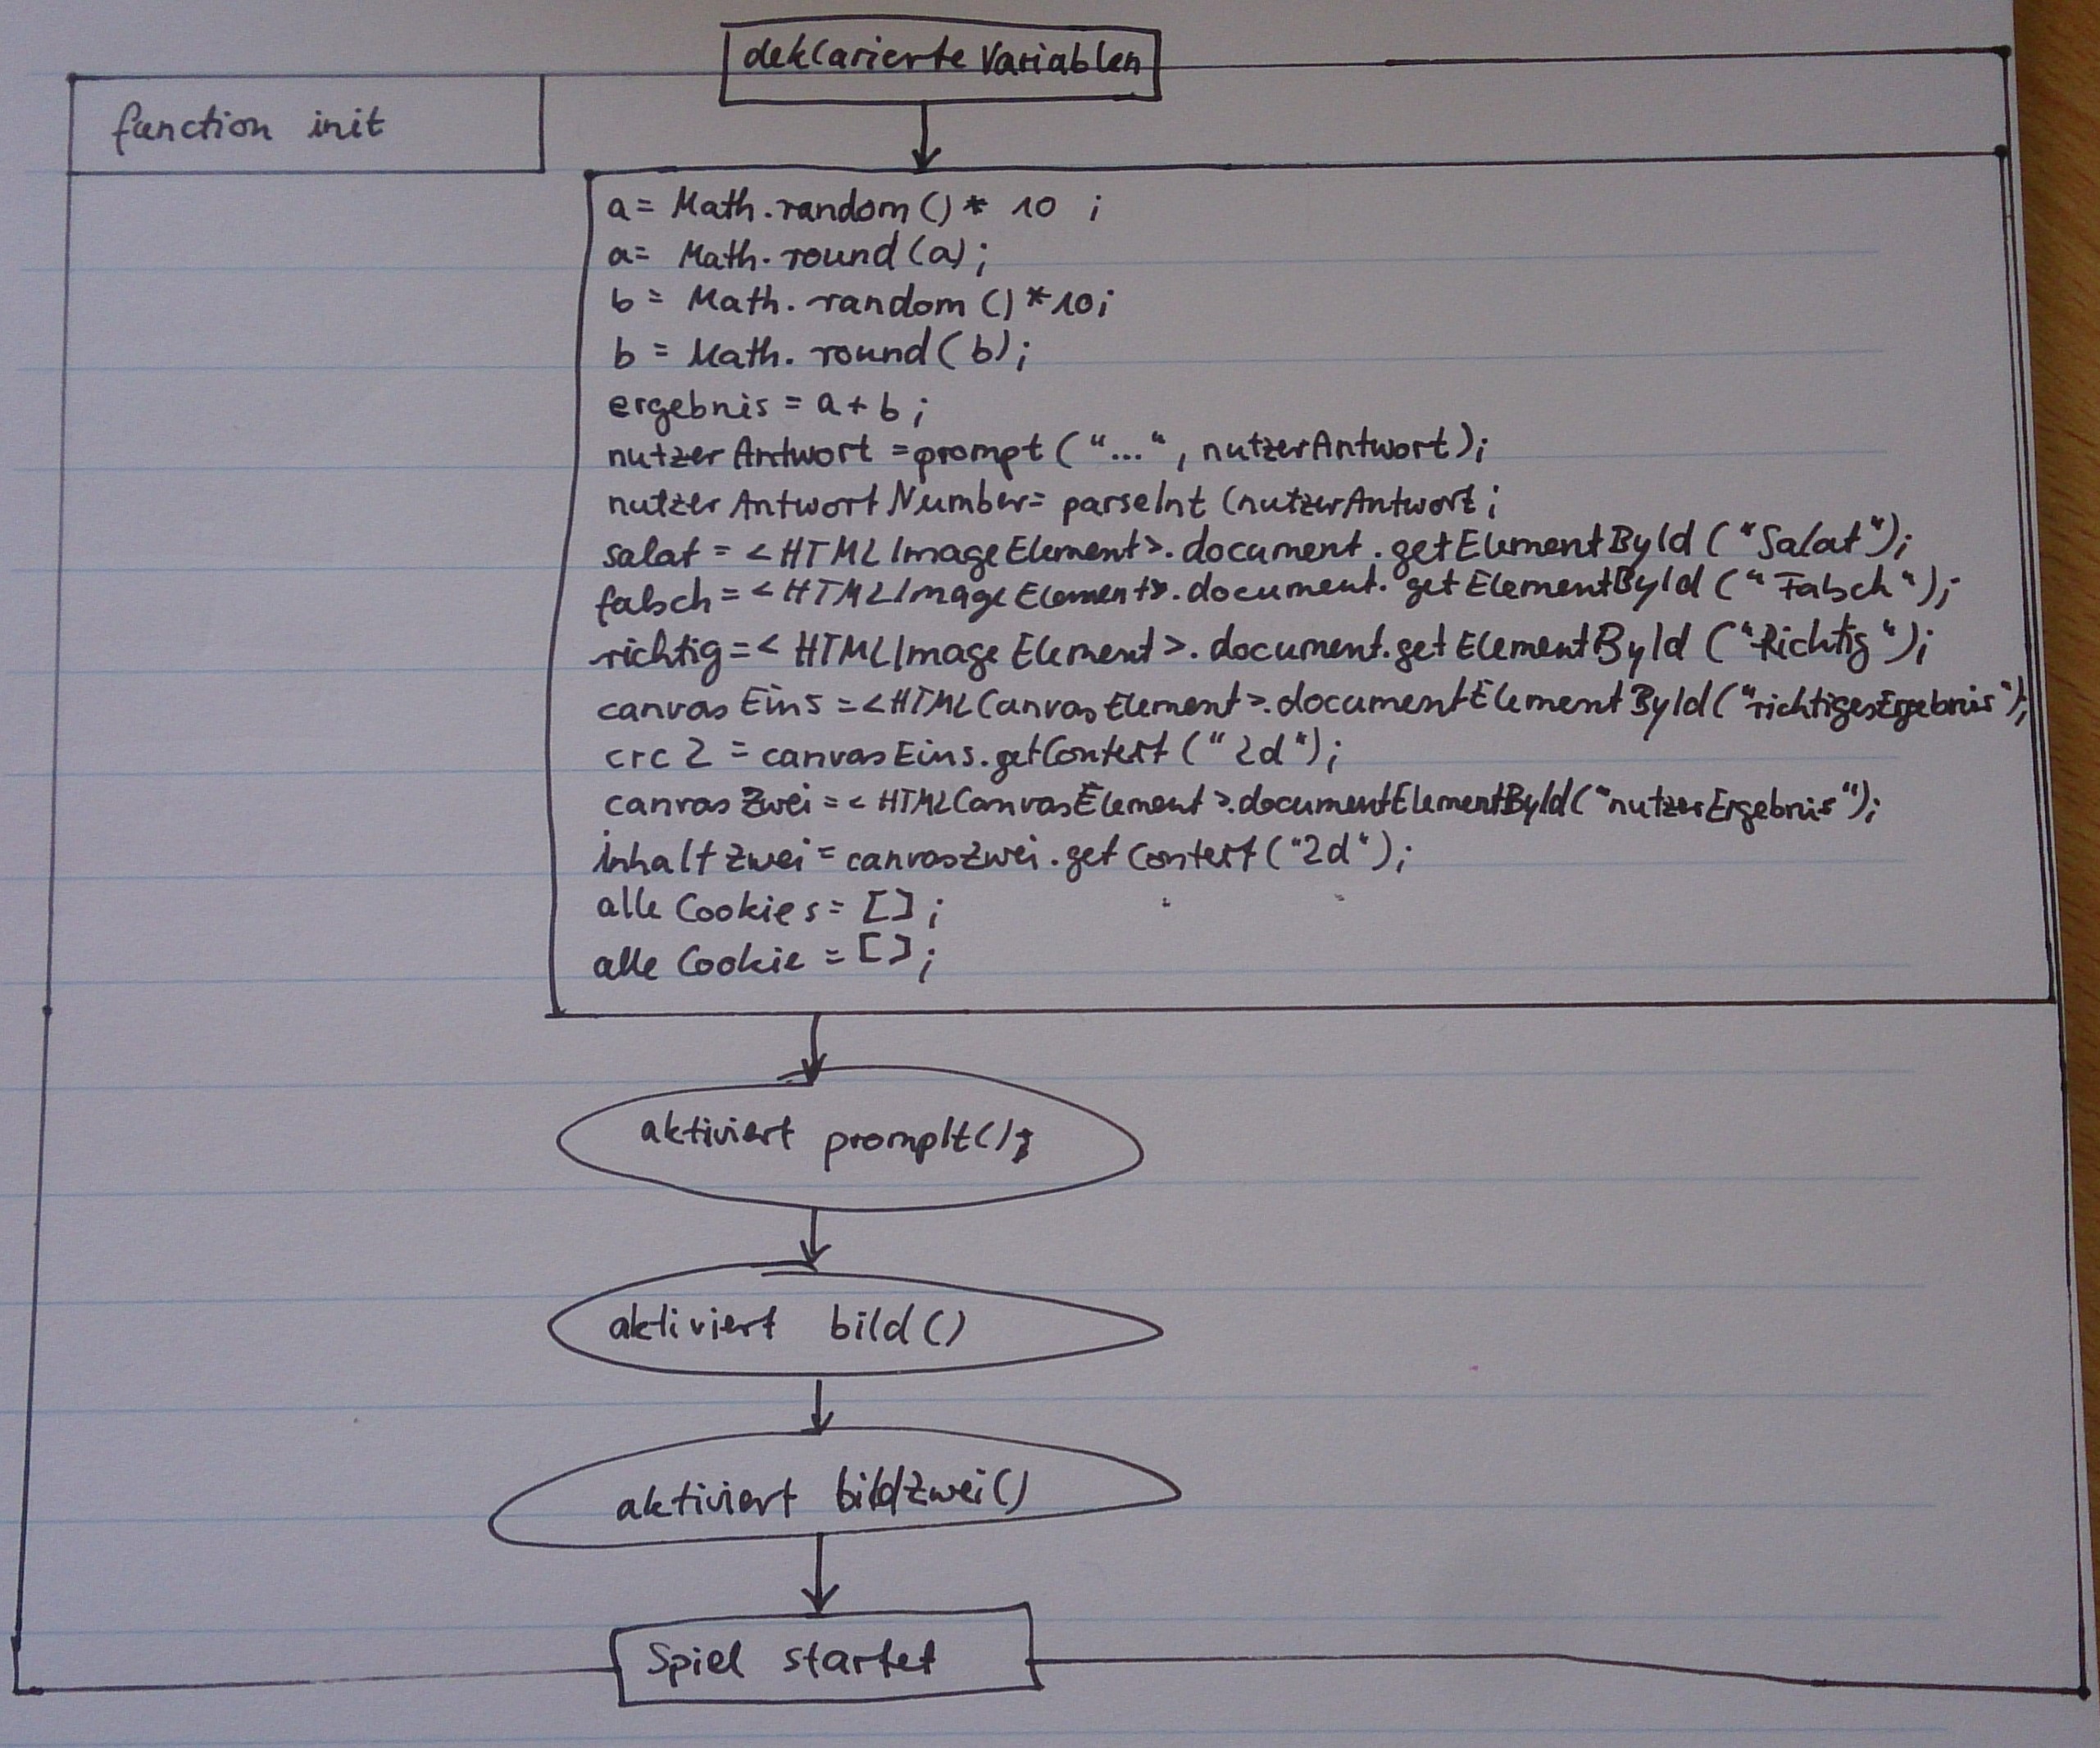 deklarierte Variablen
function init
a = Math.random () * 10 ;
a = Math.round (a);
b = Math.random () * 10;
b = Math.round (b);
ergebnis = a + b ;
nutzerAntwort = prompt ("...", nutzerAntwort);
nutzerAntwortNumber = parseInt (nutzerAntwort ;
salat = <HTMLImageElement>.document.getElementById ("Salat");
falsch = <HTMLImageElement>.document.getElementById ("Falsch");
richtig = <HTMLImageElement>.document.getElementById ("Richtig");
canvasEins = <HTMLCanvasElement>.documentElementById("richtigesErgebnis");
crc2 = canvasEins.getContext ("2d");
canvasZwei = <HTMLCanvasElement>.documentElementById("nutzerErgebnis");
inhaltZwei = canvasZwei.getContext ("2d");
alleCookies = [];
alleCookie = [];
aktiviert promplt();
aktiviert bild()
aktiviert bildzwei()
Spiel startet